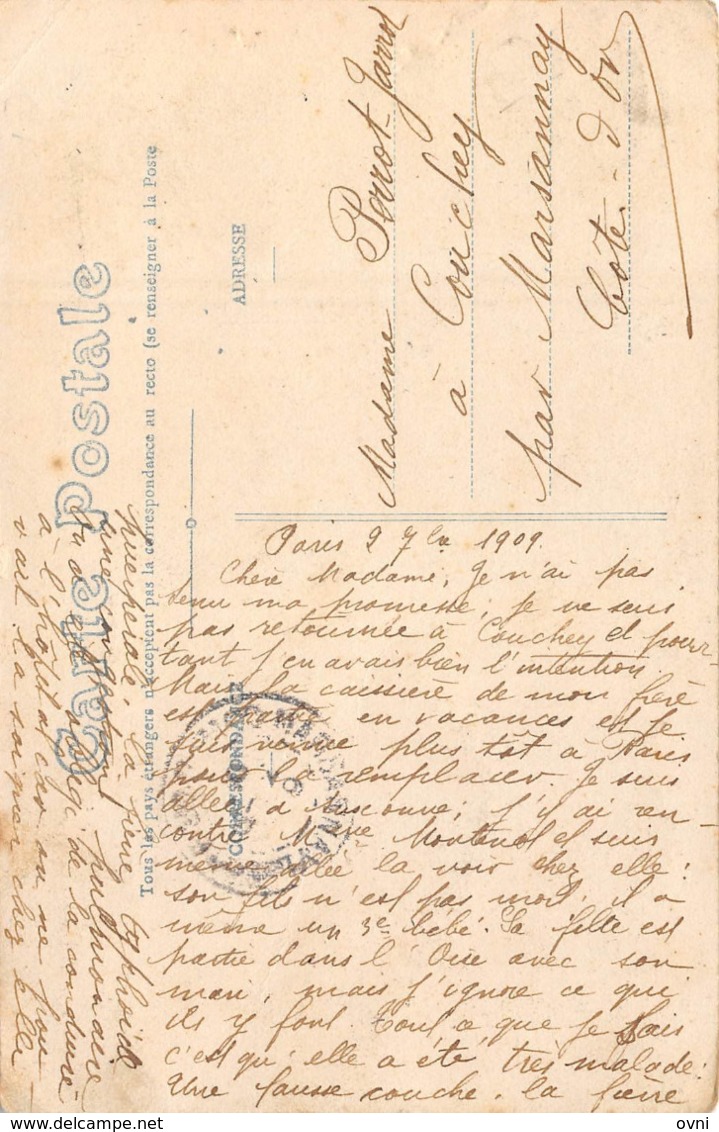 Carte Postale
Tous les pays étrangers n'acceptent pas la correspondance au recto (se renseigner à la Poste
CORRESPONDANCE
ADRESSE
Madame Perrot-Jarrot
à Couchey
par Marsannay
Côte-d'or
Paris 2 7bre 1909.
Chère Madame, Je n'ai pas
tenu ma promesse, je ne suis
pas retournée à Couchey et pour-
tant j'en avais bien l'intention.
Mais la caissière de mon frère
est partie en vacances et je
suis venue plus tôt à Paris
pour la remplacer. Je suis
allée à ; j'y ai ren-
contré Mme et suis
même allée la voir chez elle :
son fils n'est pas mort, il a
même un 3e bébé. Sa fille est
partie dans l'Oise avec son
mari, mais j'ignore ce qui
ils y font. Tout ce que je sais
c'est qu'elle a été très malade :
Une fausse couche, la fièvre
puerpérale, la fièvre typhoïde
une congestion pulmonaire
on a été obligé de la conduire
à l'hôpital car on ne pou-
vait la soigner chez elle
ovni